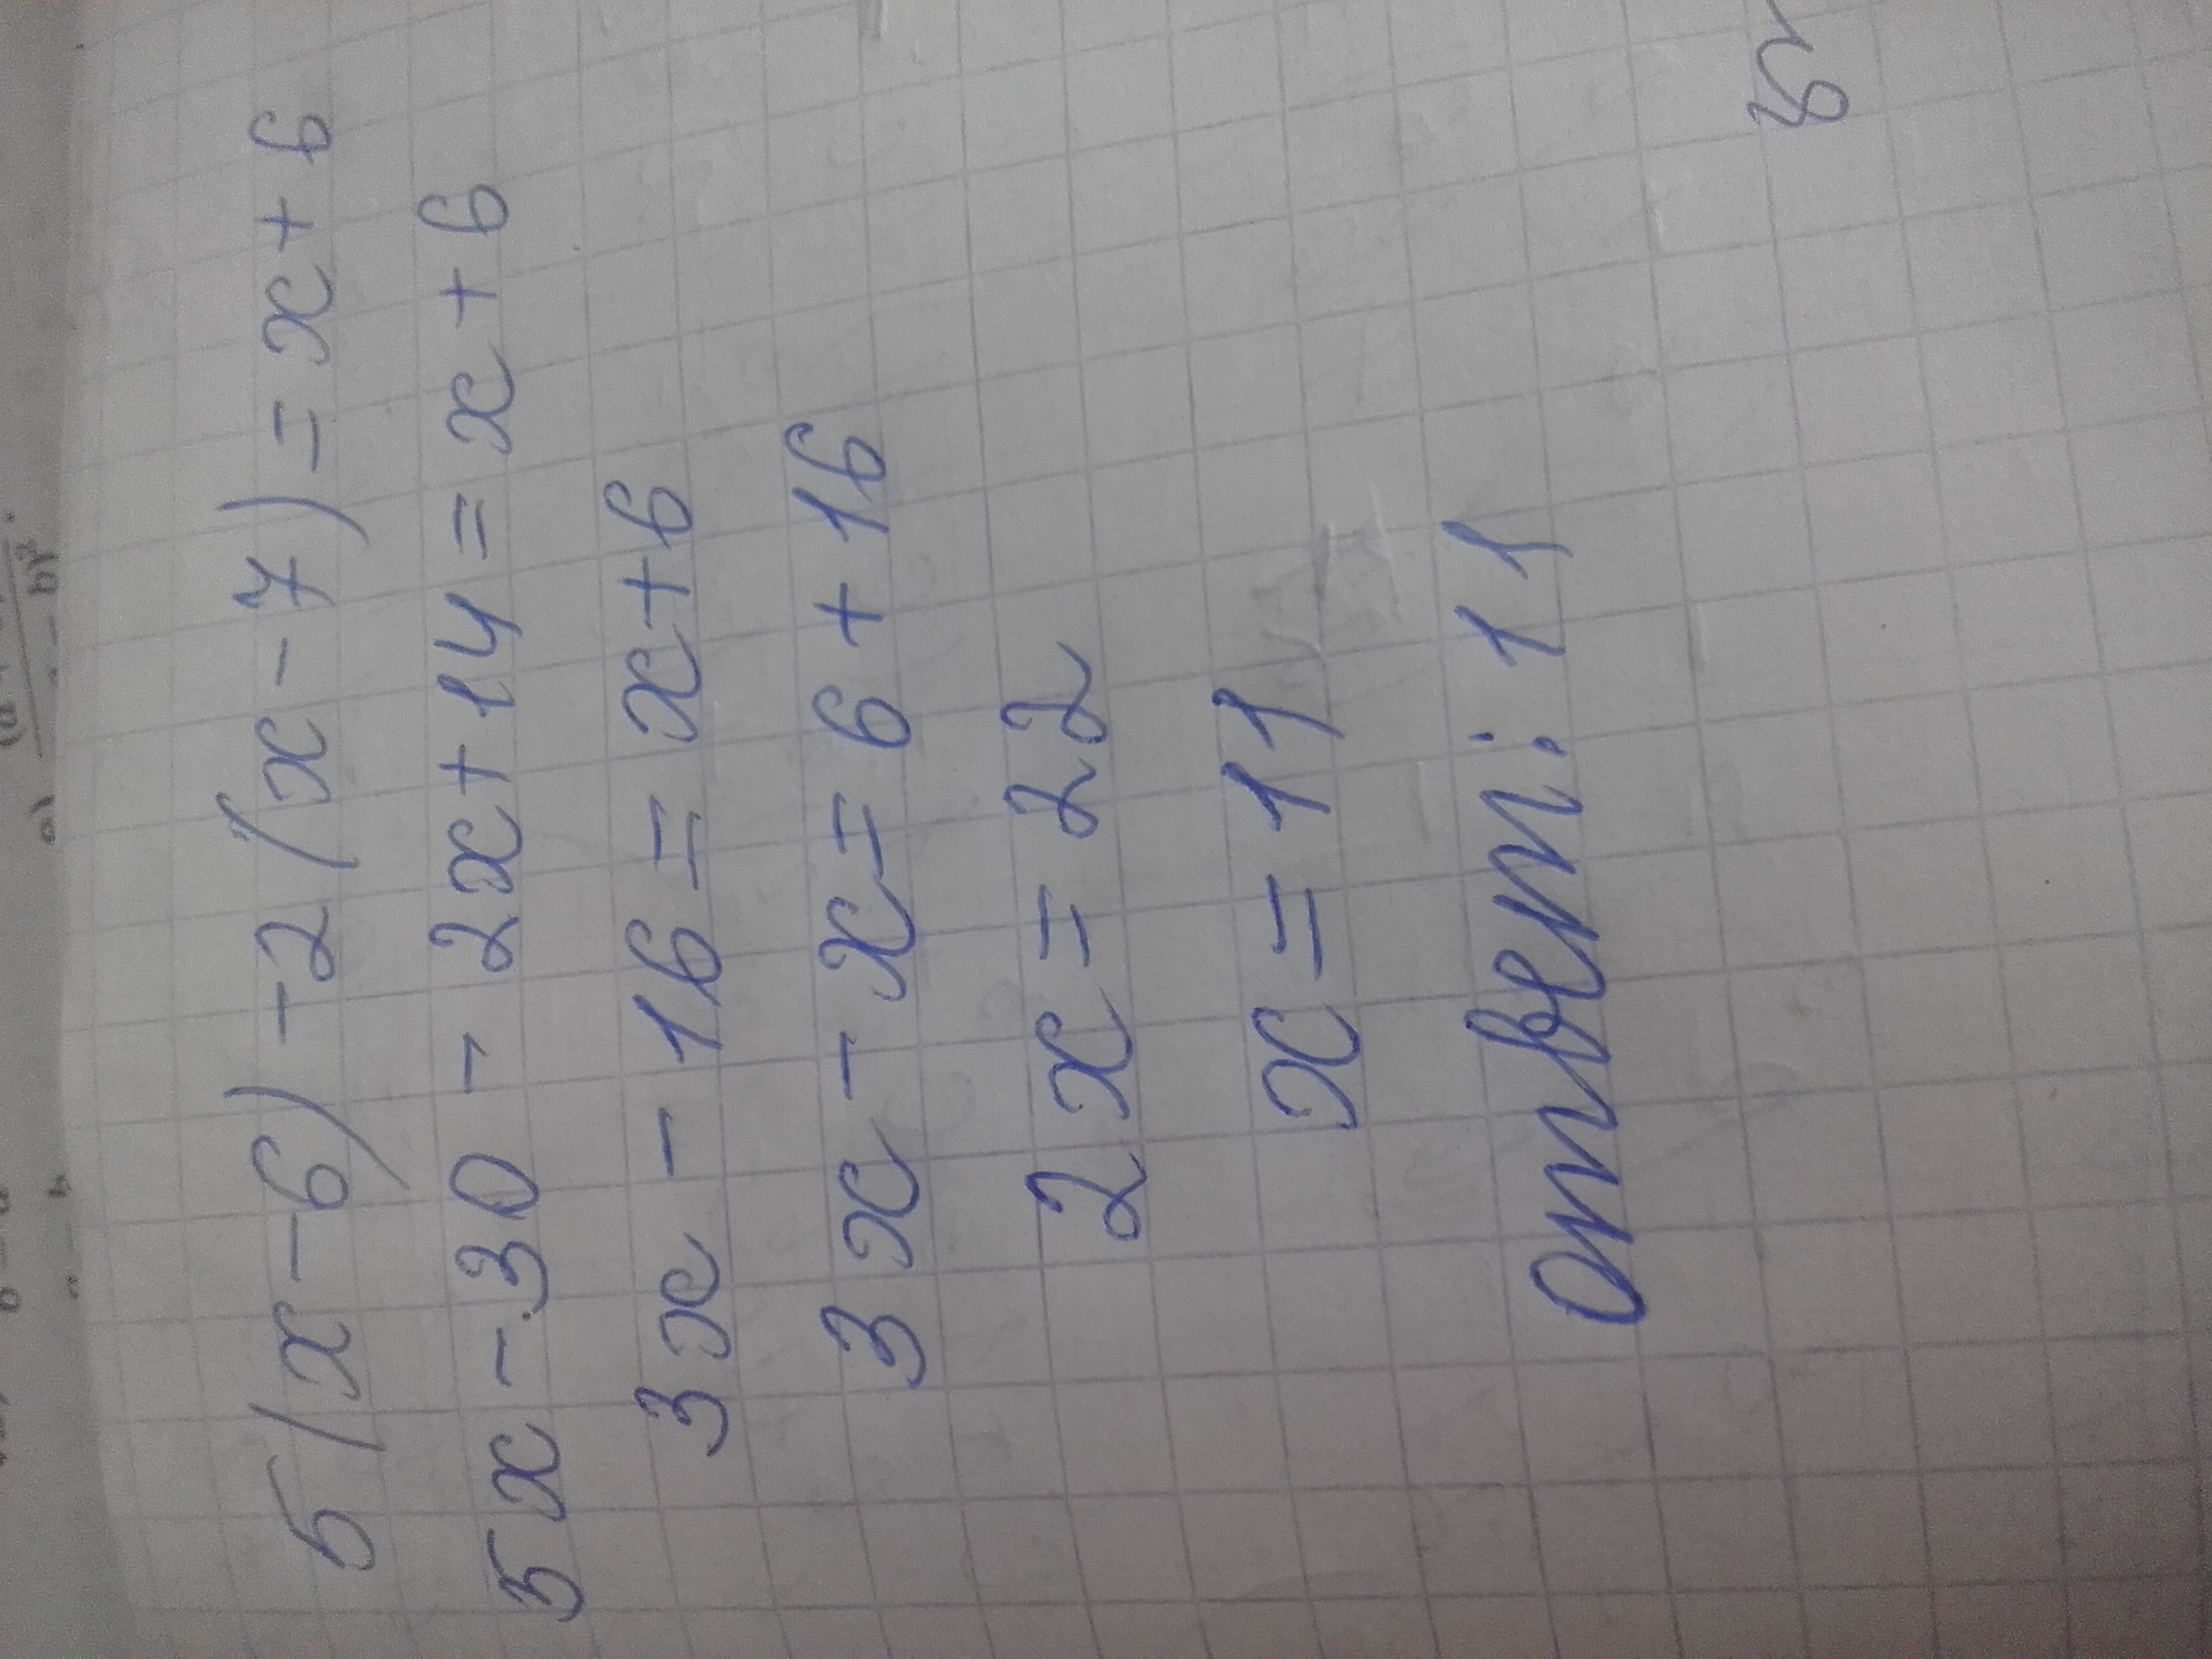 5(x-6)-2(x-7)=x+6
5x-30-2x+14=x+6
3x-16=x+6
3x-x=6+16
2x=22
x=11
Ответ: 11